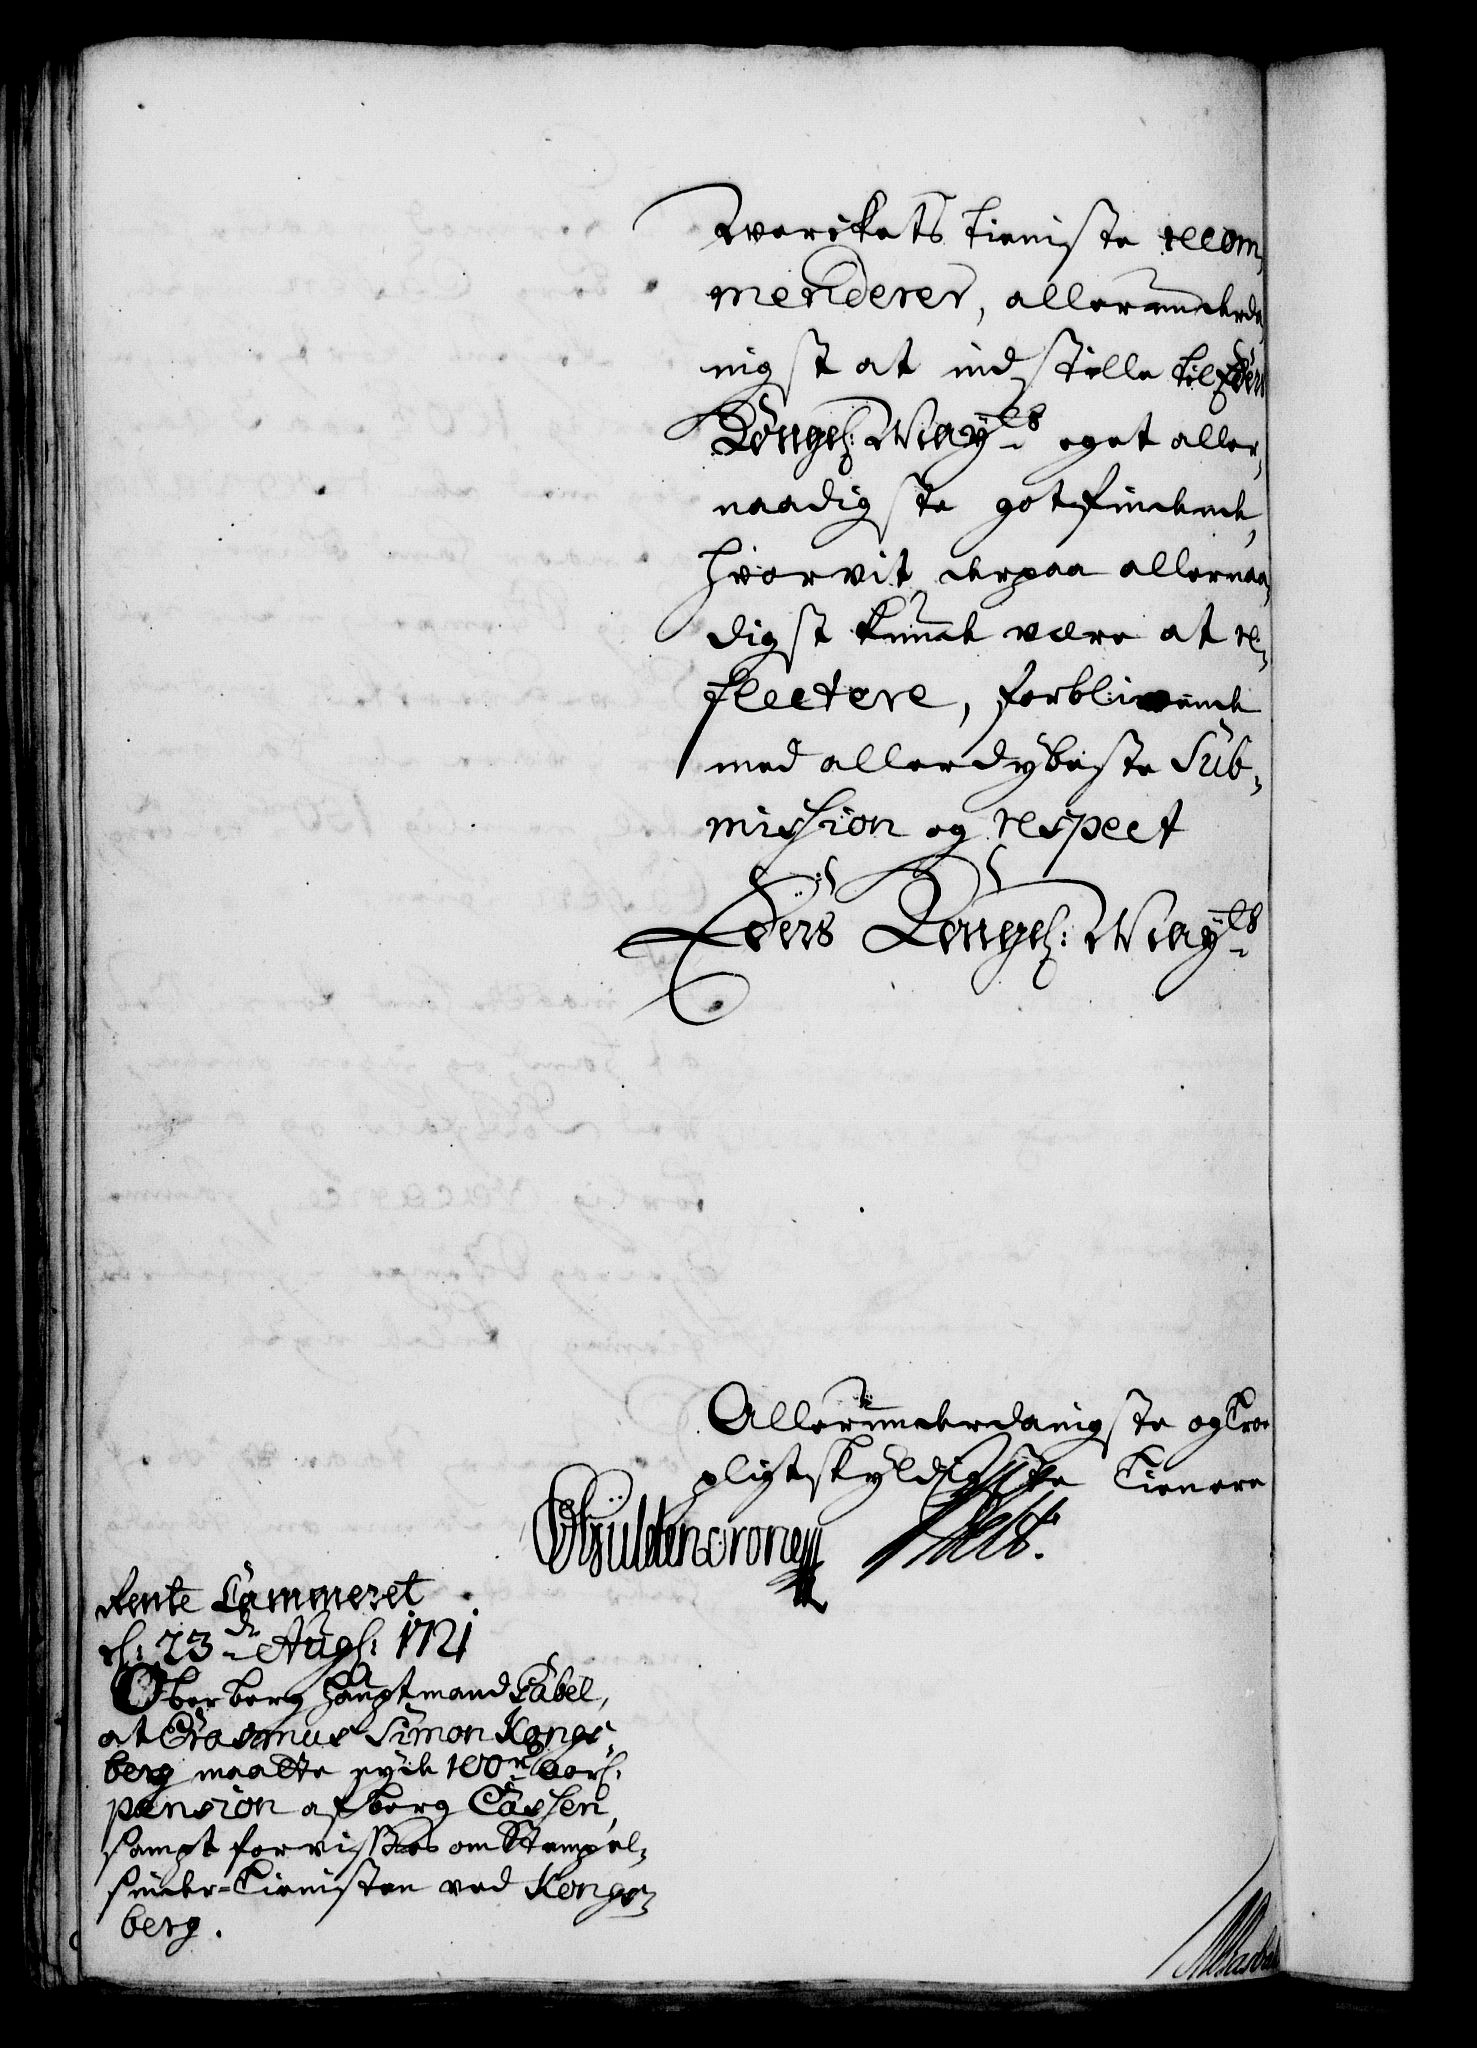 Werckets tieniste recom-
menderer, allerunderda-
nigst at indstille til Eders
Kongel: May:ts eget aller-
naadigste gotfindende,
hvorvit derpaa allernaa-
digst kunde være at re-
flectere, forblivende
med allerdybeste Sub-
mission og respect
Eders Kongel: May:ts
Allerunderdanigste og Troe
pligtskyldigste Tienere
Güldencrone
Rente Cammeret
d: 23de Aug: 1721
Ober berg Hauptmand Täbel,
at Erasmus Simon Kongs-
berg maatte nyde 100 rd aarl:
pension af berg Cassen,
sampt forvisses om Stempel-
sneder-Tienisten ved Kongs-
berg.